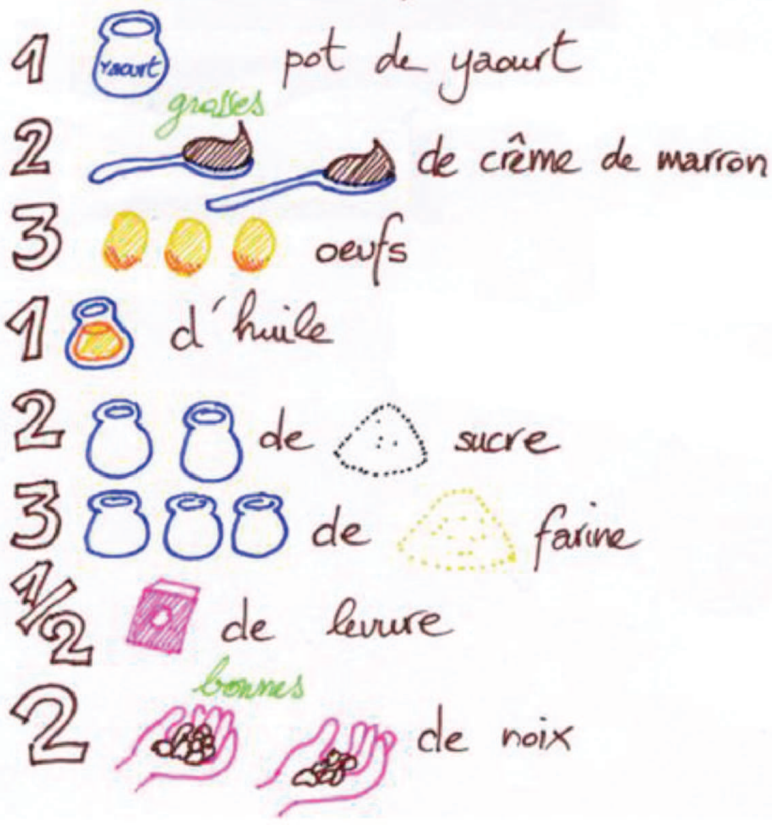 1 Yaourt pot de yaourt
grosses
2 de crême de marron
3 oeufs
1 d'huile
2 de sucre
3 de farine
1/2 de levure
bonnes
2 de noix